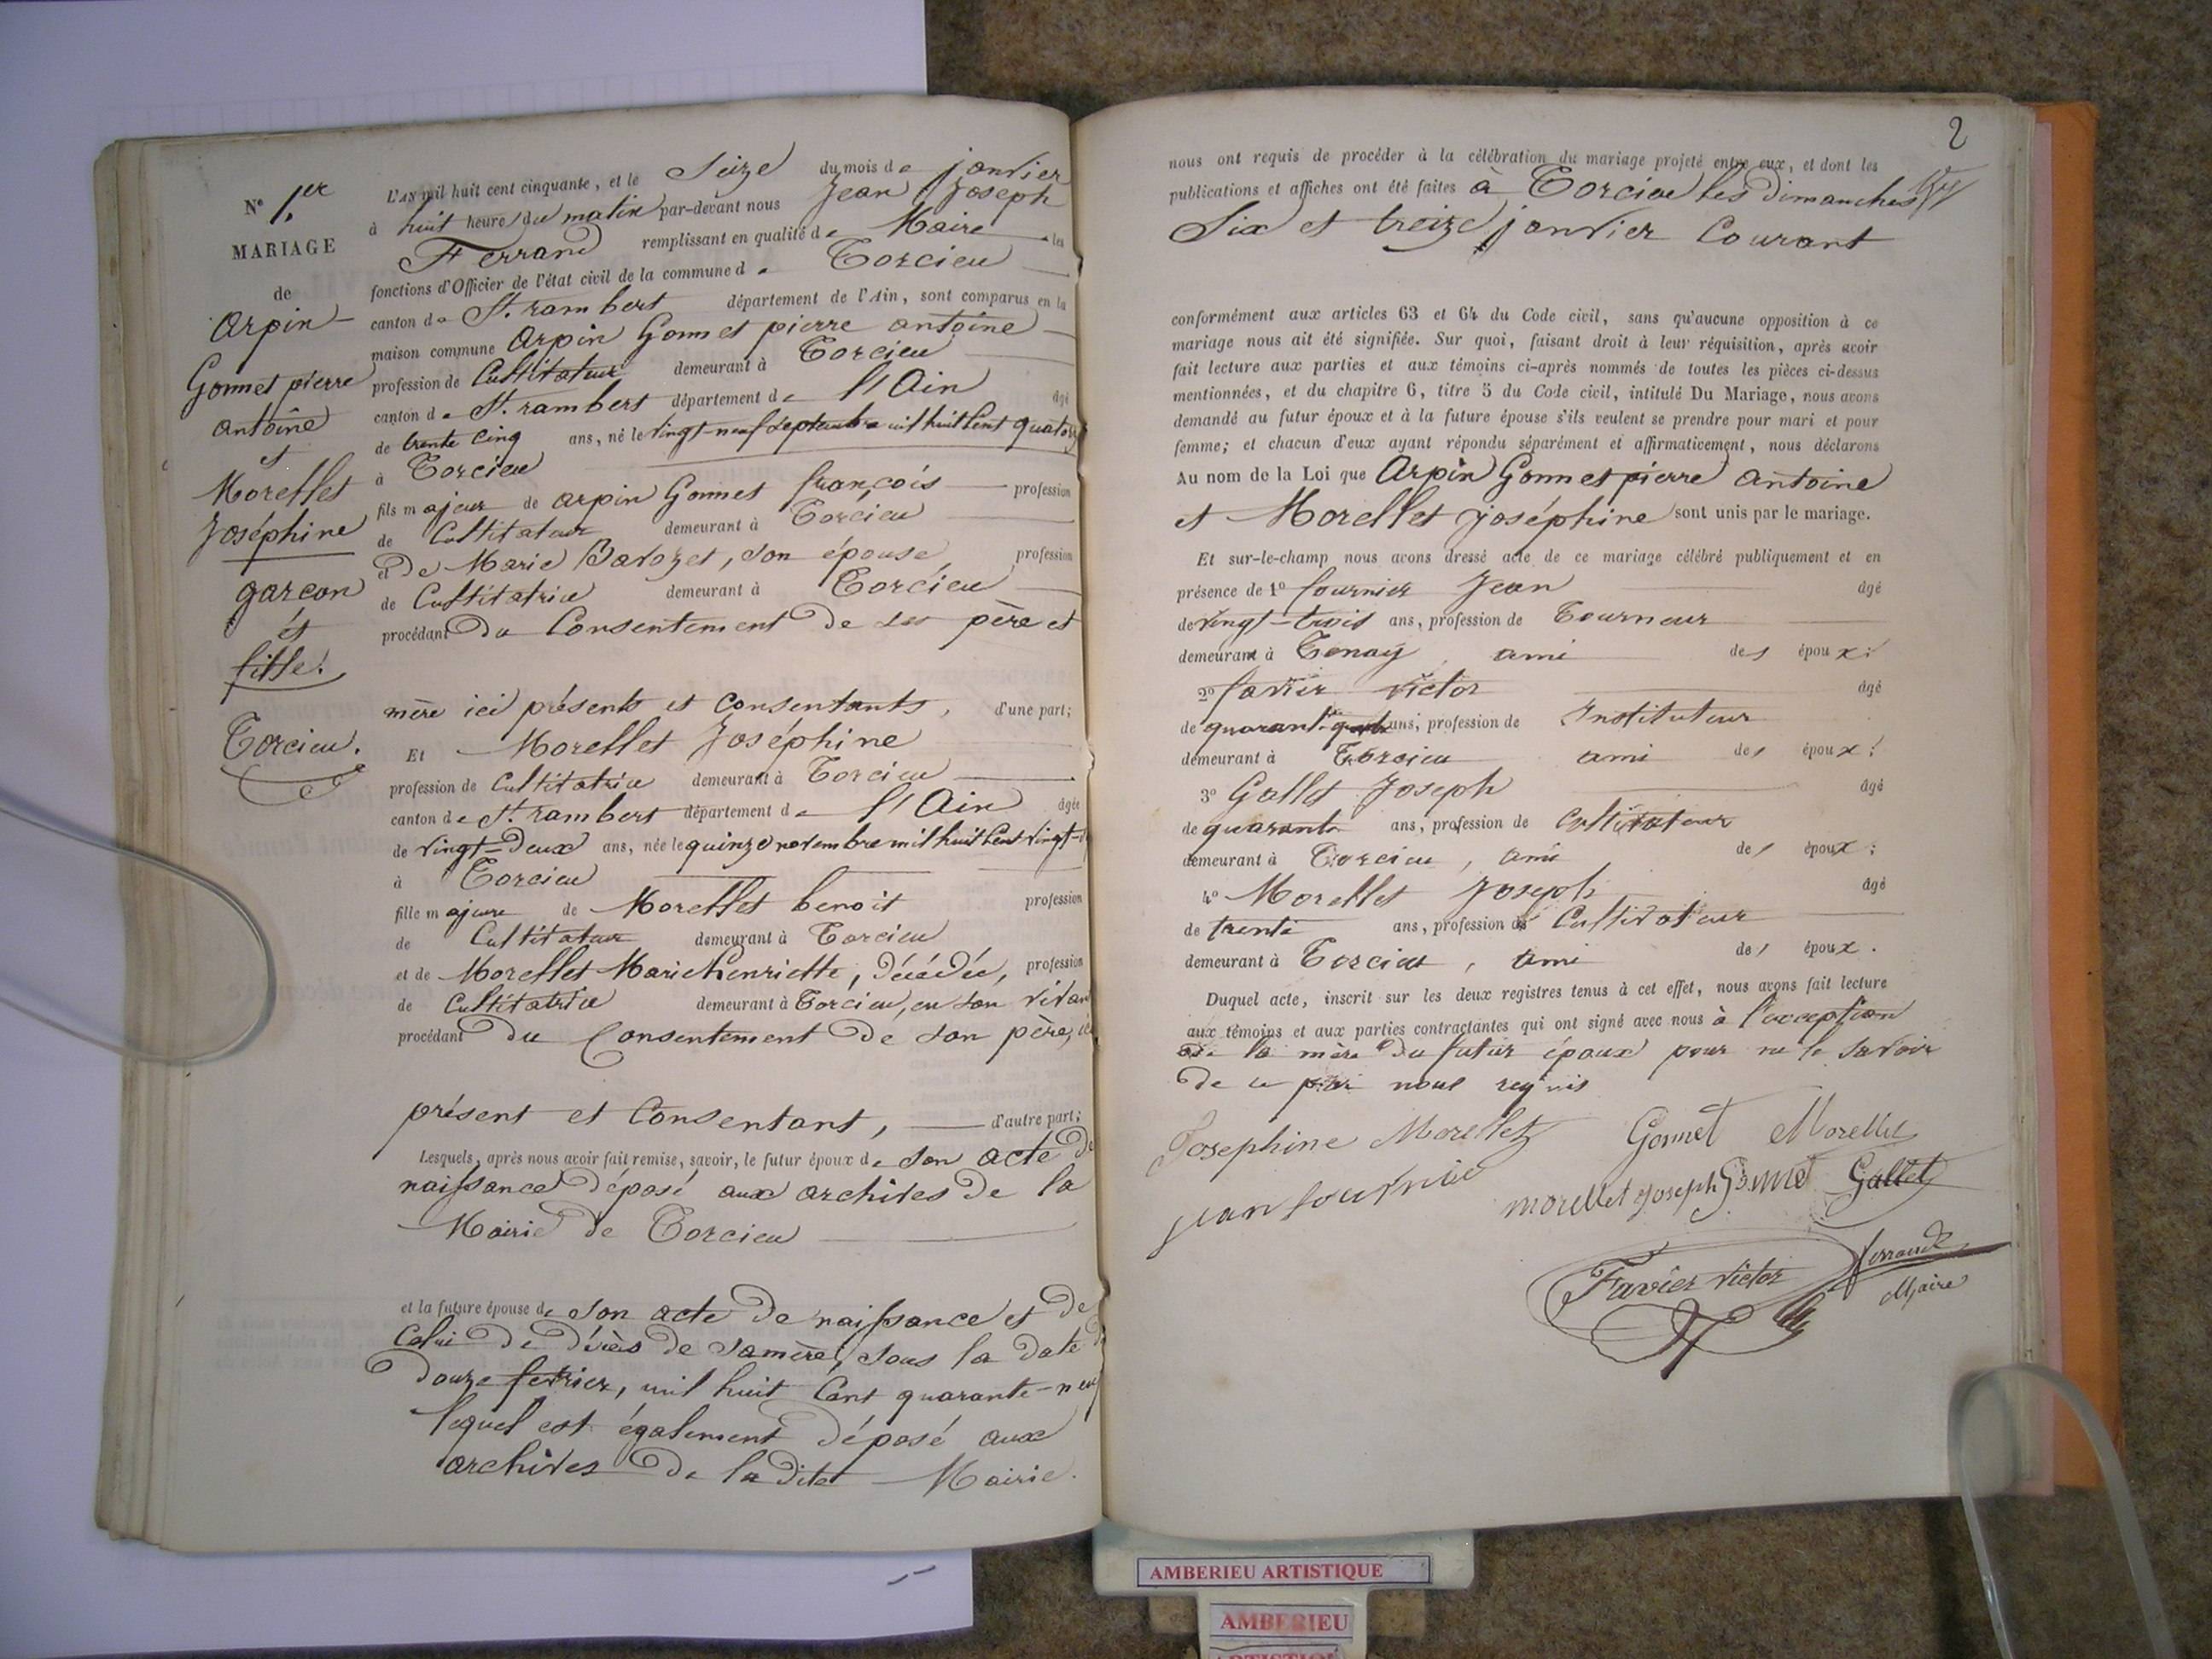 N° 1.er
MARIAGE
de
Arpin
Gonnet pierre
antoine
et
Morellet
Joséphine
garcon
et
fille.
Torcieu.
L'AN mil huit cent cinquante, et le Seize du mois de janvier
à huit heure du matin par-devant nous Jean Joseph
Ferrand remplissant en qualité de Maire les
fonctions d'Officier de l'état civil de la commune de Torcieu
canton de St. rambert département de l'Ain, sont comparus en la
maison commune Arpin Gonnet pierre antoine
profession de Cultivateur demeurant à Torcieu
canton de St. rambert département de l'Ain âgé
de trente cinq ans, né le vingt-neuf septembre mil huit cent quatorze
à Torcieu
fils majeur de arpin Gonnet françois profession
de Cultivateur demeurant à Torcieu
et De Marie Savozet, son épouse, profession
de Cultivatrice demeurant à Torcieu
procédant du Consentement De ses père et
mère ici présents et Consentants, d'une part;
Et Morellet Joséphine
profession de Cultivatrice demeurant à Torcieu
canton de St. rambert département de l'Ain âgée
de vingt-deux ans, née le quinze novembre mil huit cent vingt-
à Torcieu
fille majeure de Morellet benoit profession
de Cultivateur demeurant à Torcieu
et de Morellet Marie henriette, décédée, profession
de Cultivatrice demeurant à Torcieu, en son vivan
procédant du Consentement De son père, ici
présent et Consentant, d'autre part;
Lesquels, après nous avoir fait remise, savoir, le futur époux de son acte De
naissance Déposé aux archives De la
Mairie de Torcieu
et la future épouse de son acte De naissance et De
Celui De Décès De sa mère, sous la date
Douze fevrier, mil huit Cent quarante-neuf
lequel est également Déposé aux
archives De la dite Mairie.
2
nous ont requis de procéder à la célébration du mariage projeté entre eux, et dont les
publications et affiches ont été faites à Torcieu les Dimanches
Six et treize janvier Courant
conformément aux articles 63 et 64 du Code civil, sans qu'aucune opposition à ce
mariage nous ait été signifiée. Sur quoi, faisant droit à leur réquisition, après avoir
fait lecture aux parties et aux témoins ci-après nommés de toutes les pièces ci-dessus
mentionnées, et du chapitre 6, titre 5 du Code civil, intitulé Du Mariage, nous avons
demandé au futur époux et à la future épouse s'ils veulent se prendre pour mari et pour
femme; et chacun d'eux ayant répondu séparément et affirmativement, nous déclarons
Au nom de la Loi que Arpin Gonnet pierre Antoine
et Morellet joséphine sont unis par le mariage.
Et sur-le-champ nous avons dressé acte de ce mariage célébré publiquement et en
présence de 1° fournier Jean âgé
de vingt-trois ans, profession de Tourneur
demeurant à Tenay, ami des époux;
2° favier victor âgé
de quarante ans, profession de Instituteur
demeurant à Torcieu ami des époux;
3° Gallet Joseph âgé
de quarante ans, profession de Cultivateur
demeurant à Torcieu, ami des époux;
4° Morellet Joseph âgé
de trente ans, profession de Cultivateur
demeurant à Torcieu, ami des époux.
Duquel acte, inscrit sur les deux registres tenus à cet effet, nous avons fait lecture
aux témoins et aux parties contractantes qui ont signé avec nous à l'exception
De la mère Du futur époux pour ne le savoir
De ce par nous requis
Josephine Morellet Gonnet Morellet
jean fournié morellet joseph Gallet
Favier victor ferrand
Maire
AMBERIEU ARTISTIQUE
AMBERIEU
ARTISTIQUE